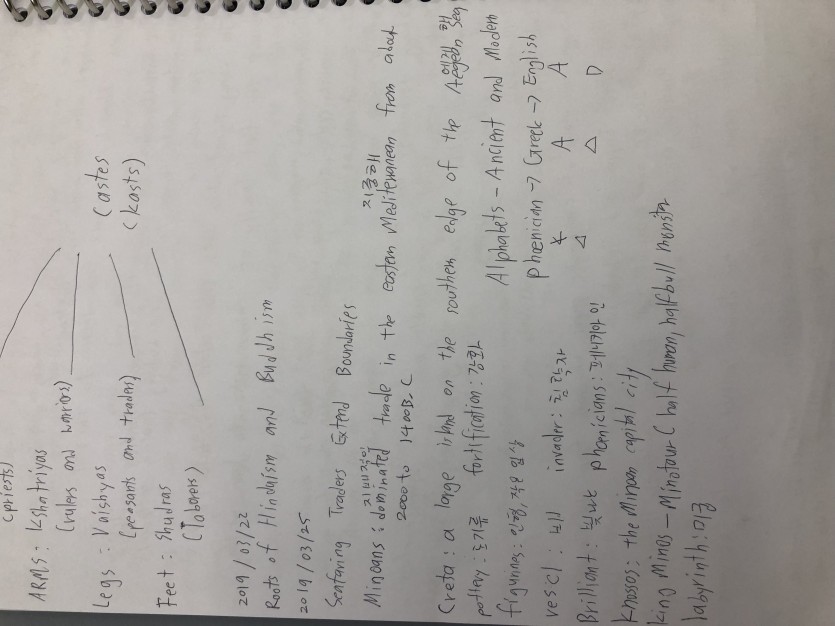 (priests)
ARMS : Kshatriyas
(rulers and warriors)
Legs : Vaishyas
(peasants and traders)
Feet : Shudras
(laborers)
Castes
(kasts)
2019/03/22
Roots of Hinduism and Buddhism
2019/03/25
Seafaring Traders Extend Boundaries
지배적인 지중해
Minoans : dominated trade in the eastern Mediterranean from about
2000 to 1400B.C
에게 해
Creta : a large island on the southern edge of the Aegean Sea
pottery : 도기류 fortification : 강화
figurines : 인형, 작은 입상
vescl : 비 invader : 침략자
Brilliant : 빛난 phoenicians : 페니키아 인
Knossos : the Minoan capital city
King Minos - Minotaur (half human, half bull monster
labyrinth : 미궁
Alphabets - Ancient and Modern
phoenician → Greek → English
A A
Δ Δ D